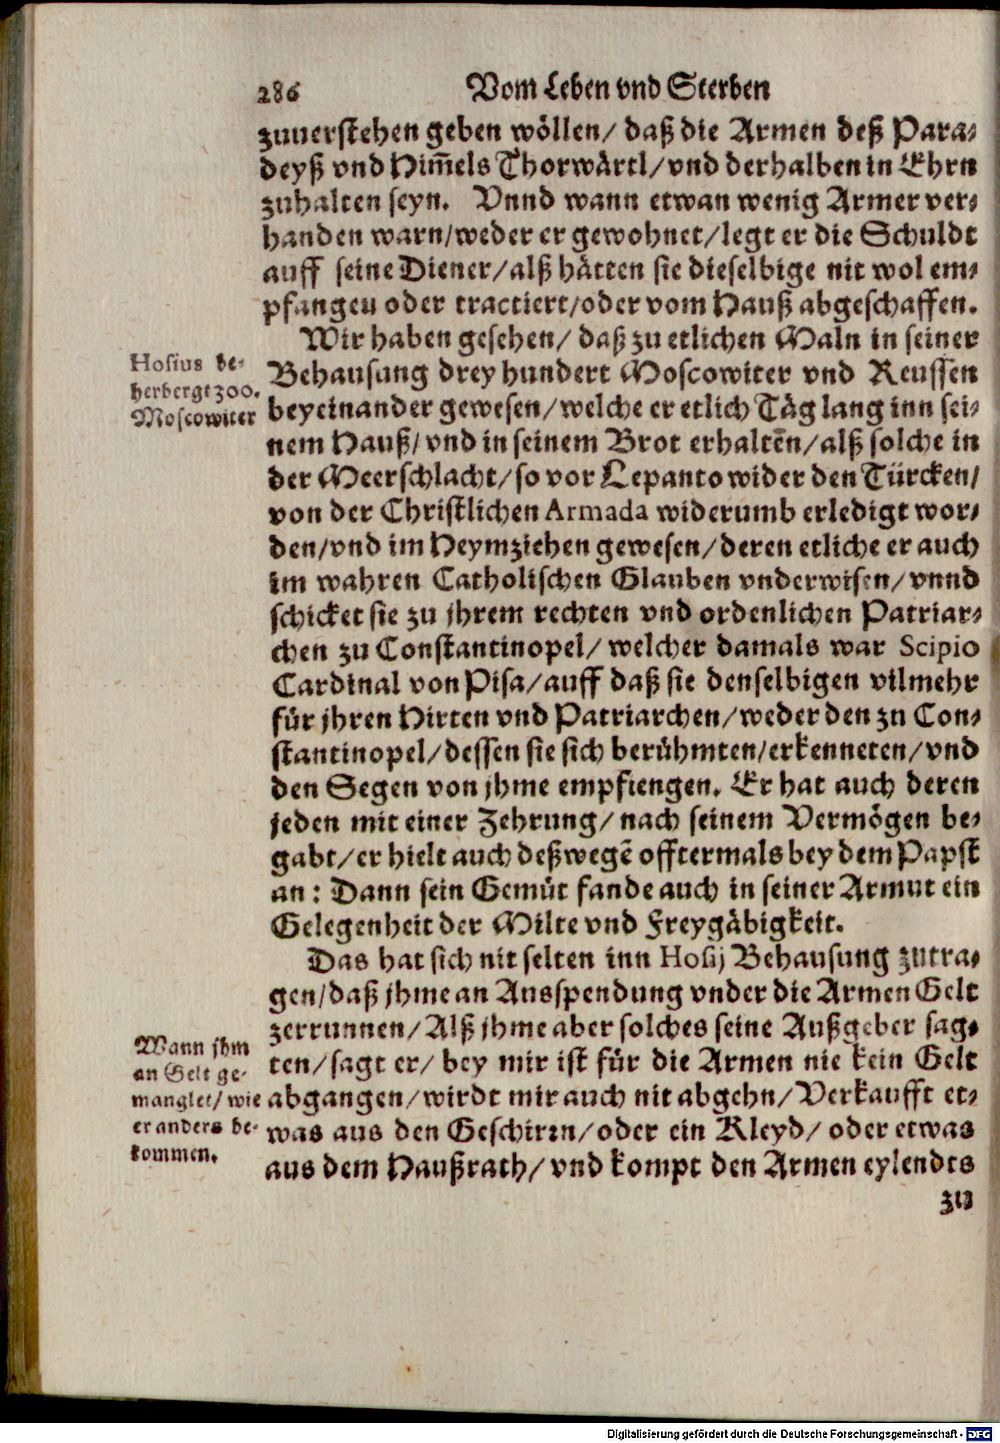 286 Vom Leben vnd Sterben
zuuerstehen geben wöllen/ daß die Armen deß Para-
deyß vnd Him̃els Thorwärtl/ vnd derhalben in Ehrn
zuhalten seyn. Vnnd wann etwan wenig Armer ver-
handen warn/ weder er gewohnet/ legt er die Schuldt
auff seine Diener/ alß hätten sie dieselbige nit wol em-
pfangen oder tractiert/ oder vom Hauß abgeschaffen.
Wir haben gesehen/ daß zu etlichen Maln in seiner
Hosius be-
herbergt 300.
Moscowiter
Behausung drey hundert Moscowiter vnd Reussen
beyeinander gewesen/ welche er etlich Täg lang inn sei-
nem Hauß/ vnd in seinem Brot erhaltẽn/ alß solche in
der Meerschlacht/ so vor Lepanto wider den Türcken/
von der Christlichen Armada widerumb erledigt wor-
den/ vnd im Heymziehen gewesen/ deren etliche er auch
im wahren Catholischen Glauben vnderwisen/ vnnd
schicket sie zu jhrem rechten vnd ordenlichen Patriar-
chen zu Constantinopel/ welcher damals war Scipio
Cardinal von Pisa/ auff daß sie denselbigen vilmehr
für jhren Hirten vnd Patriarchen/ weder den zu Con-
stantinopel/ dessen sie sich berühmten/ erkenneten/ vnd
den Segen von jhme empfiengen. Er hat auch deren
jeden mit einer Zehrung/ nach seinem Vermögen be-
gabt/ er hielt auch deßwegẽ offtermals bey dem Papst
an: Dann sein Gemüt fande auch in seiner Armut ein
Gelegenheit der Milte vnd Freygäbigkeit.
Das hat sich nit selten inn Hosij Behausung zutra-
gen/ daß jhme an Ausspendung vnder die Armen Gelt
zerrunnen/ Alß jhme aber solches seine Außgeber sag-
Wann jhm
an Gelt ge-
manglet/ wie
er anders be-
kommen.
ten/ sagt er/ bey mir ist für die Armen nie kein Gelt
abgangen/ wirdt mir auch nit abgehn/ Verkaufft et-
was aus den Geschirrn/ oder ein Kleyd/ oder etwas
aus dem Haußrath/ vnd kompt den Armen eylendts
zu
Digitalisierung gefördert durch die Deutsche Forschungsgemeinschaft - DFG